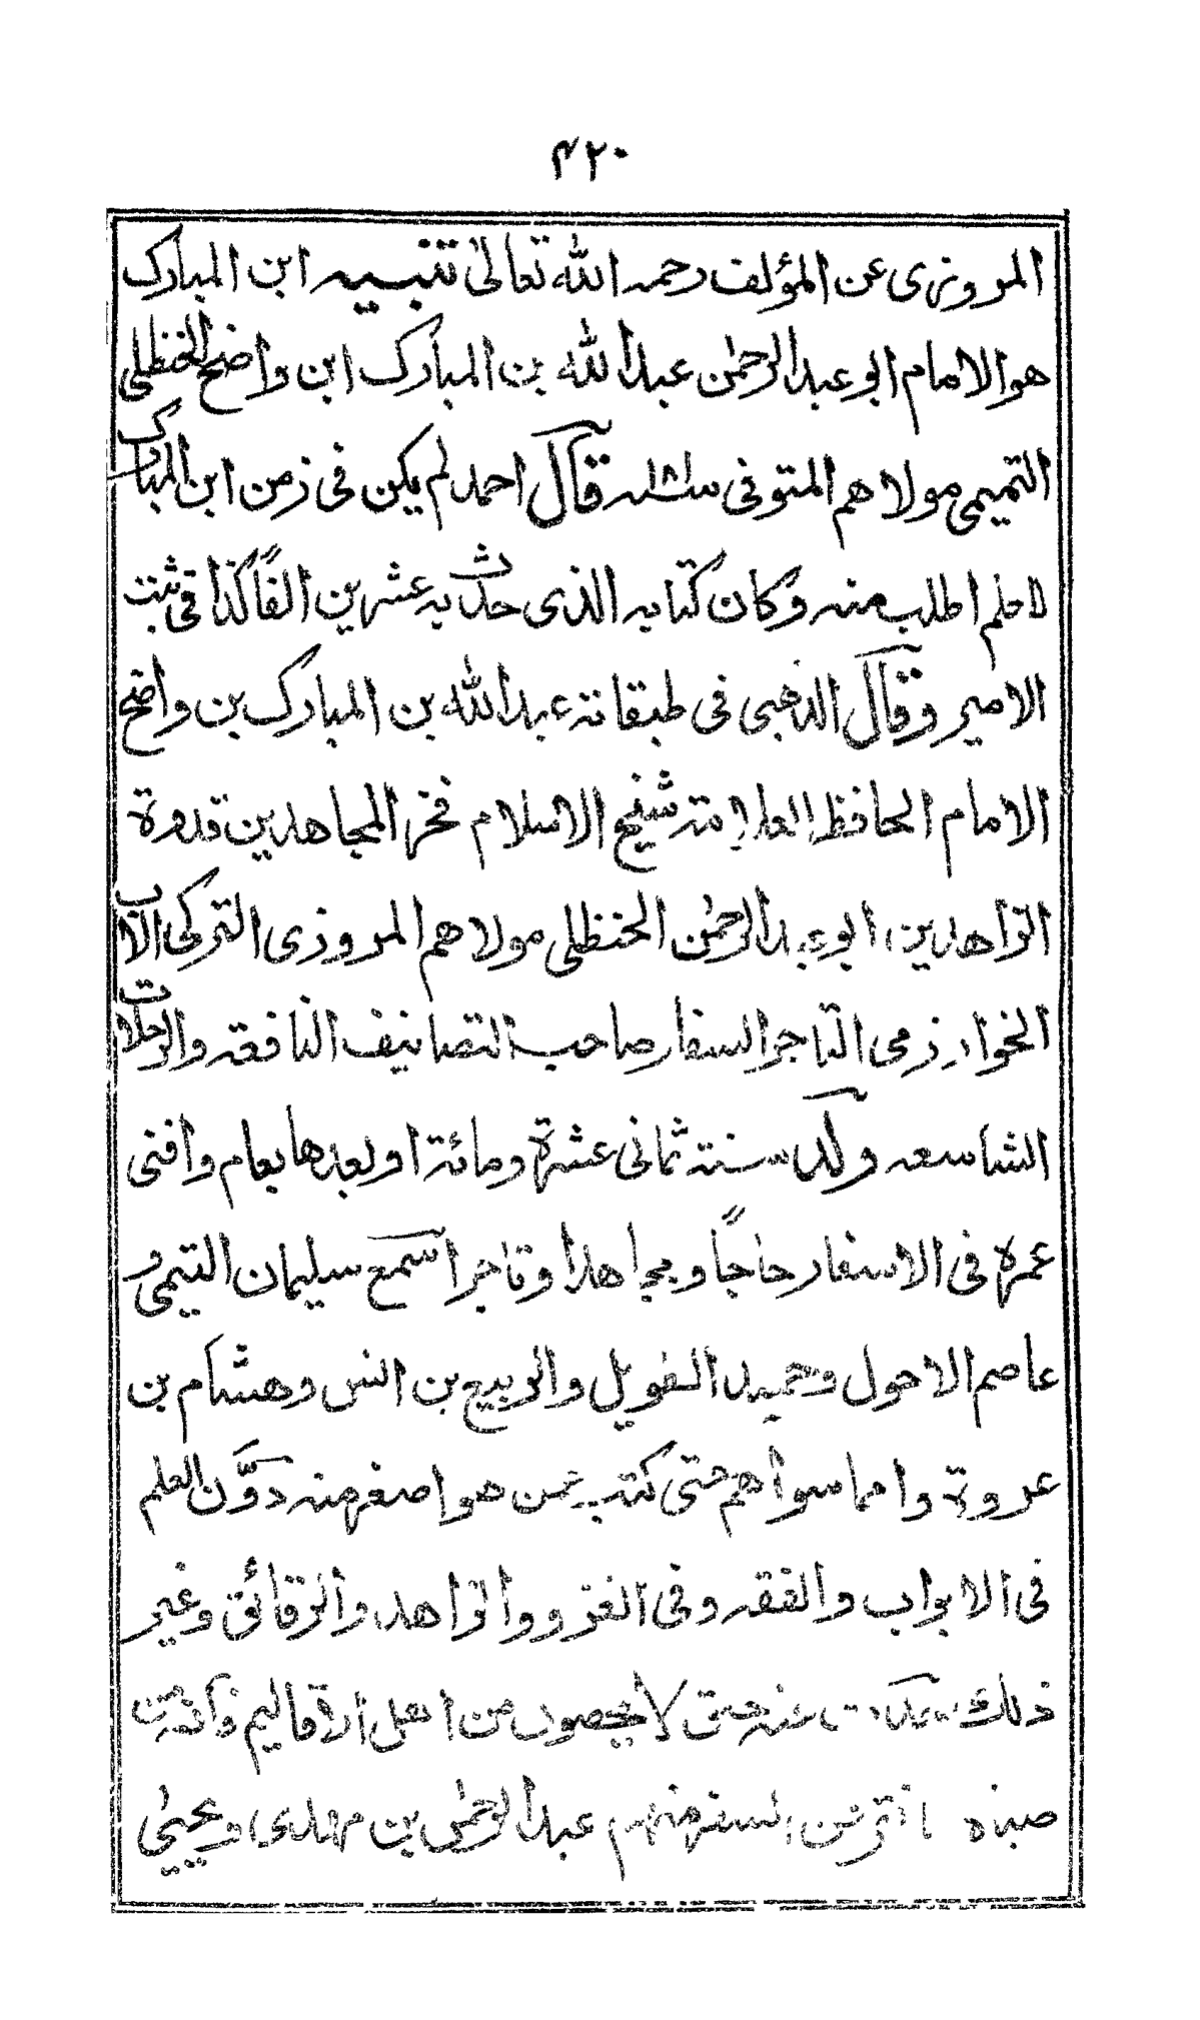 ۴۲۰
المروزی عن المؤلف رحمہ اللہ تعالیٰ تنبیہ ابن المبارک
ھو الامام ابو عبد الرحمٰن عبد اللہ بن المبارک ابن واضح الحنظلی
التمیمی مولاھم المتوفی سنۃ قال احمد لم یکن فی زمن ابن المبارک
لاعلم اطلب منہ وکان کتابہ الذی حدث بہ عشرین الفًا کذا فی ثبت
الامیر وقال الذھبی فی طبقاتہ عبد اللہ بن المبارک بن واضح
الامام الحافظ العلامۃ شیخ الاسلام فخر المجاھدین قدوۃ
الزاھدین ابو عبد الرحمٰن الحنظلی مولاھم المروزی الترکی الاب
الخوارزمی التاجر السفار صاحب التصانیف النافعۃ والرحلات
الشاسعہ ولد سنۃ ثمانی عشرۃ ومائۃ او بعدھا بعام وافنی
عمرہ فی الاسفار حاجًا ومجاھدا وتاجرا سمع سلیمان التیمی و
عاصم الاحول وحمید الطویل والربیع بن انس وھشام بن
عروۃ واما سواھم حتی کتب عمن ھو اصغر منہ دوَّن العلم
فی الابواب والفقہ وفی الغزو والزاھد والرقائق وغیر
ذلک عنہ خلق لا یحصون من اھل الاقالیم
السفر منھم عبد الرحمٰن بن مھدی ویحییٰ